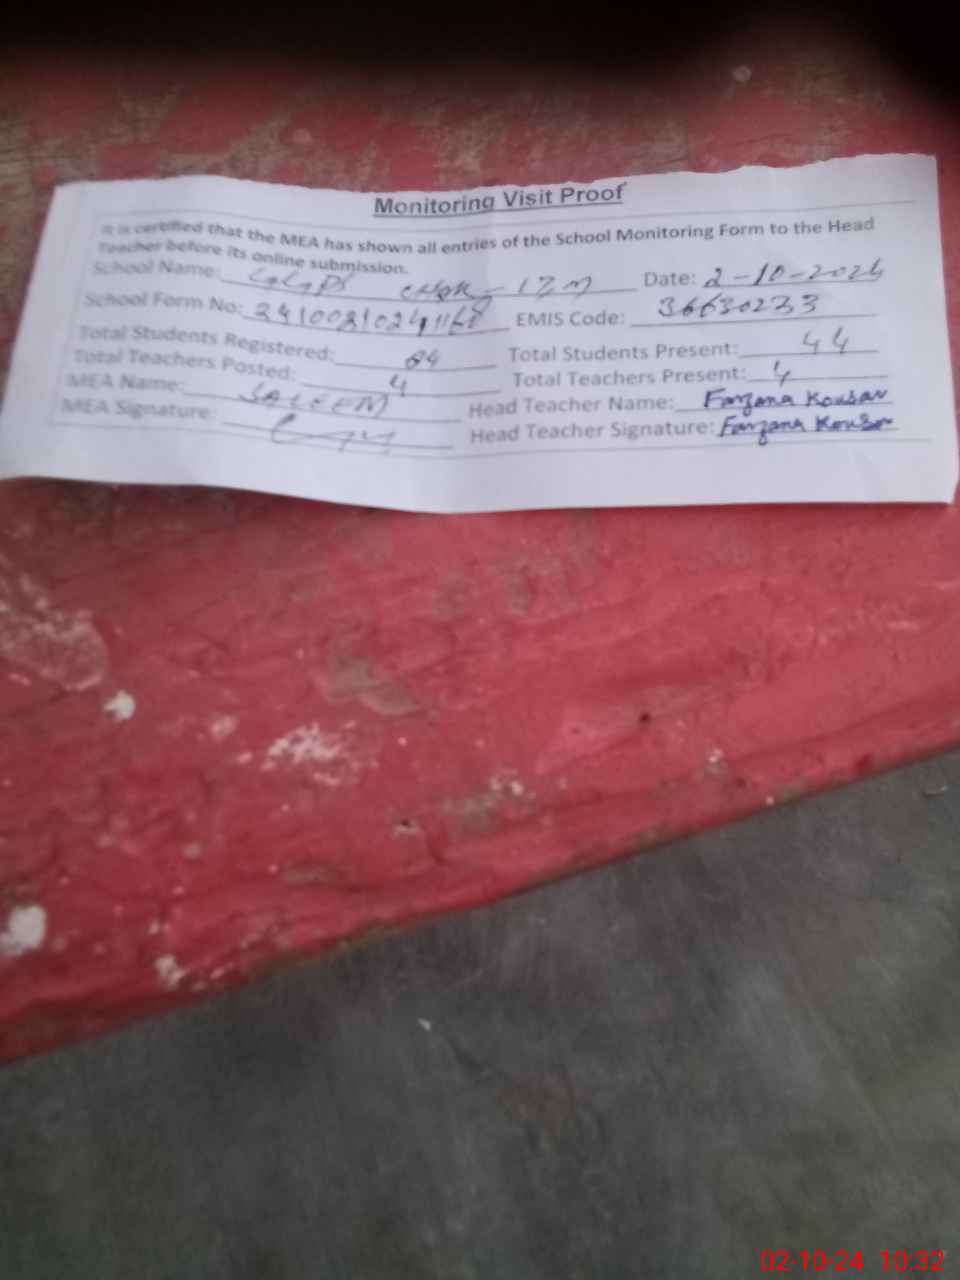 Monitoring Visit Proof
It is certified that the MEA has shown all entries of the School Monitoring Form to the Head
Teacher before its online submission.
School Name: GGPS Chak - 17 M Date: 2-10-2024
School Form No: EMIS Code: 36630233
Total Students Registered: 64 Total Students Present: 44
Total Teachers Posted: 4 Total Teachers Present: 4
MEA Name: SALEEM Head Teacher Name: Farzana Kousar
MEA Signature: Head Teacher Signature: Farzana Kousar
02-10-24 10:32